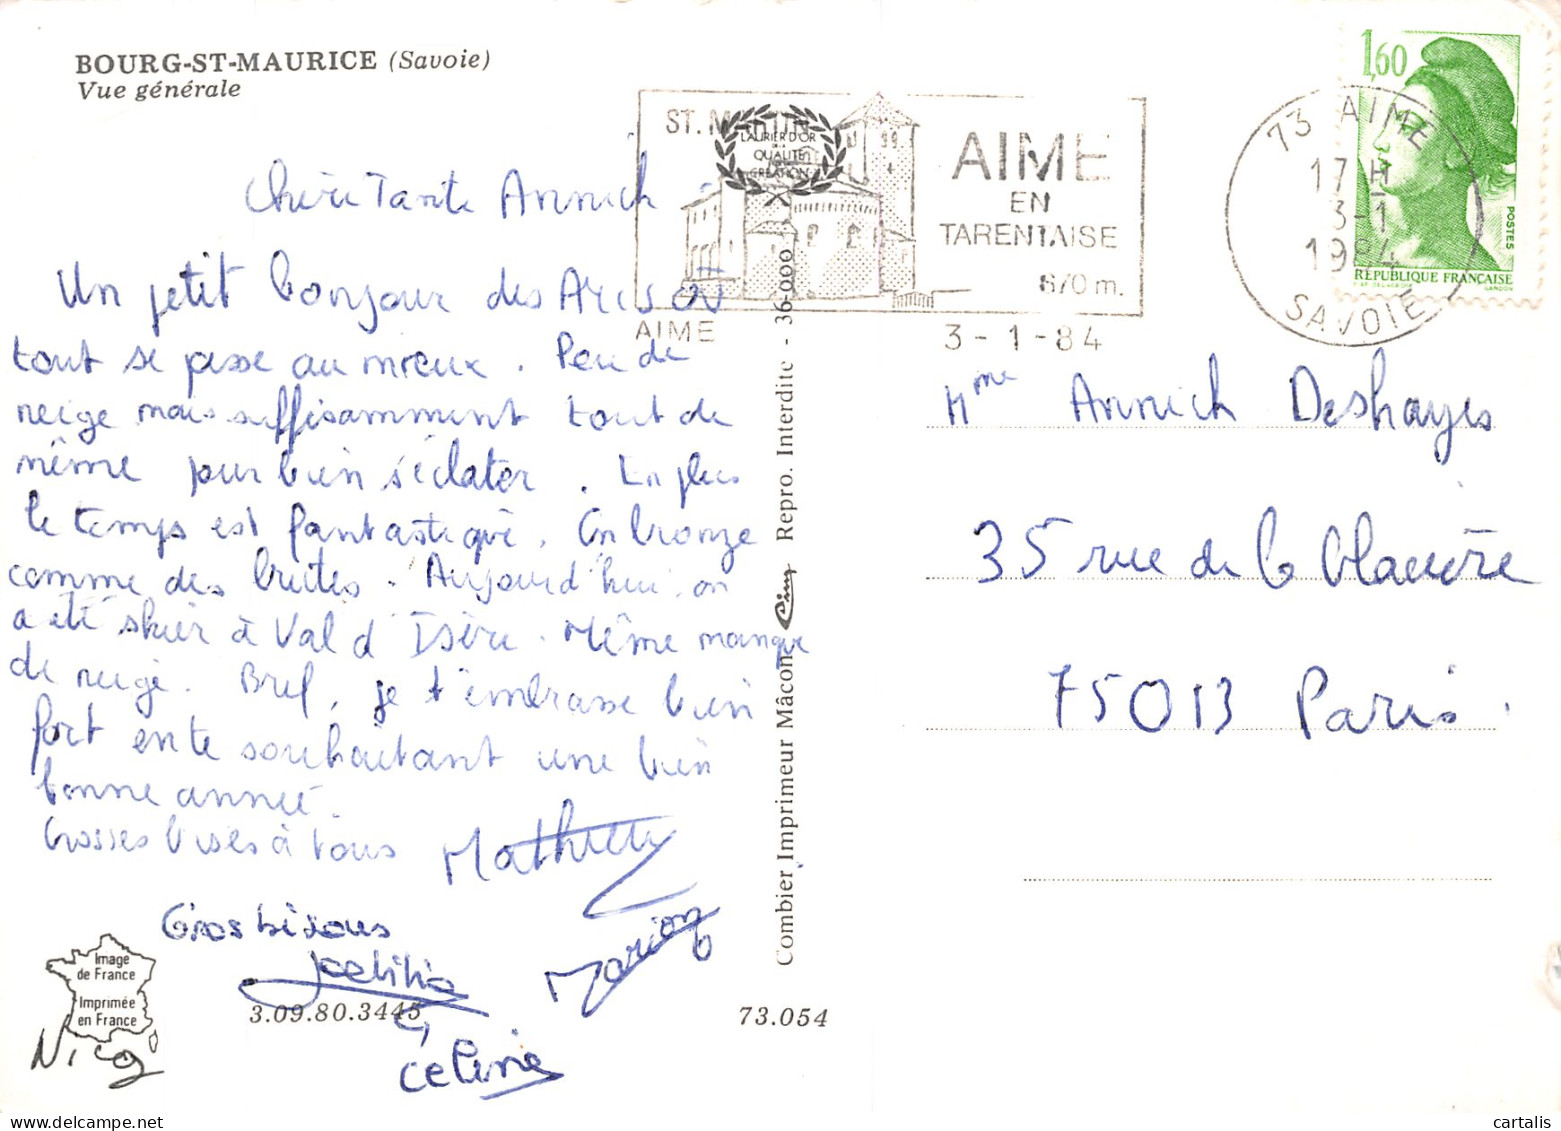 BOURG-ST-MAURICE (Savoie)
Vue générale
Chère Tante Annick
Un petit bonjour des Arcs où
tout se passe au mieux. Peu de
neige mais suffisamment tout de
même pour bien s'éclater. En plus
le temps est fantastique. On bronze
comme des brutes. Aujourd'hui on
a été skier à Val d'Isère. Même manque
de neige. Bref, je t'embrasse bien
fort en te souhaitant une bien
bonne année.
Grosses bises à tous Mathieu
Gros bisous
Laetitia
Marion
Céline
Nico
Image
de France
Imprimée
en France
3.09.80.3445
73.054
Combier Imprimeur Mâcon Cim Repro. Interdite - 36-000
ST. MARTIN
LAURIER D'OR
DE LA
QUALITE
CREATION
AIME
EN
TARENTAISE
670 m.
AIME
3-1-84
73 AIME
17 H
3-1
1984
SAVOIE
1,60
POSTES
RÉPUBLIQUE FRANÇAISE
GANDON
Mme Annick Deshayes
35 rue de la Glacière
75013 Paris.
© cartalis